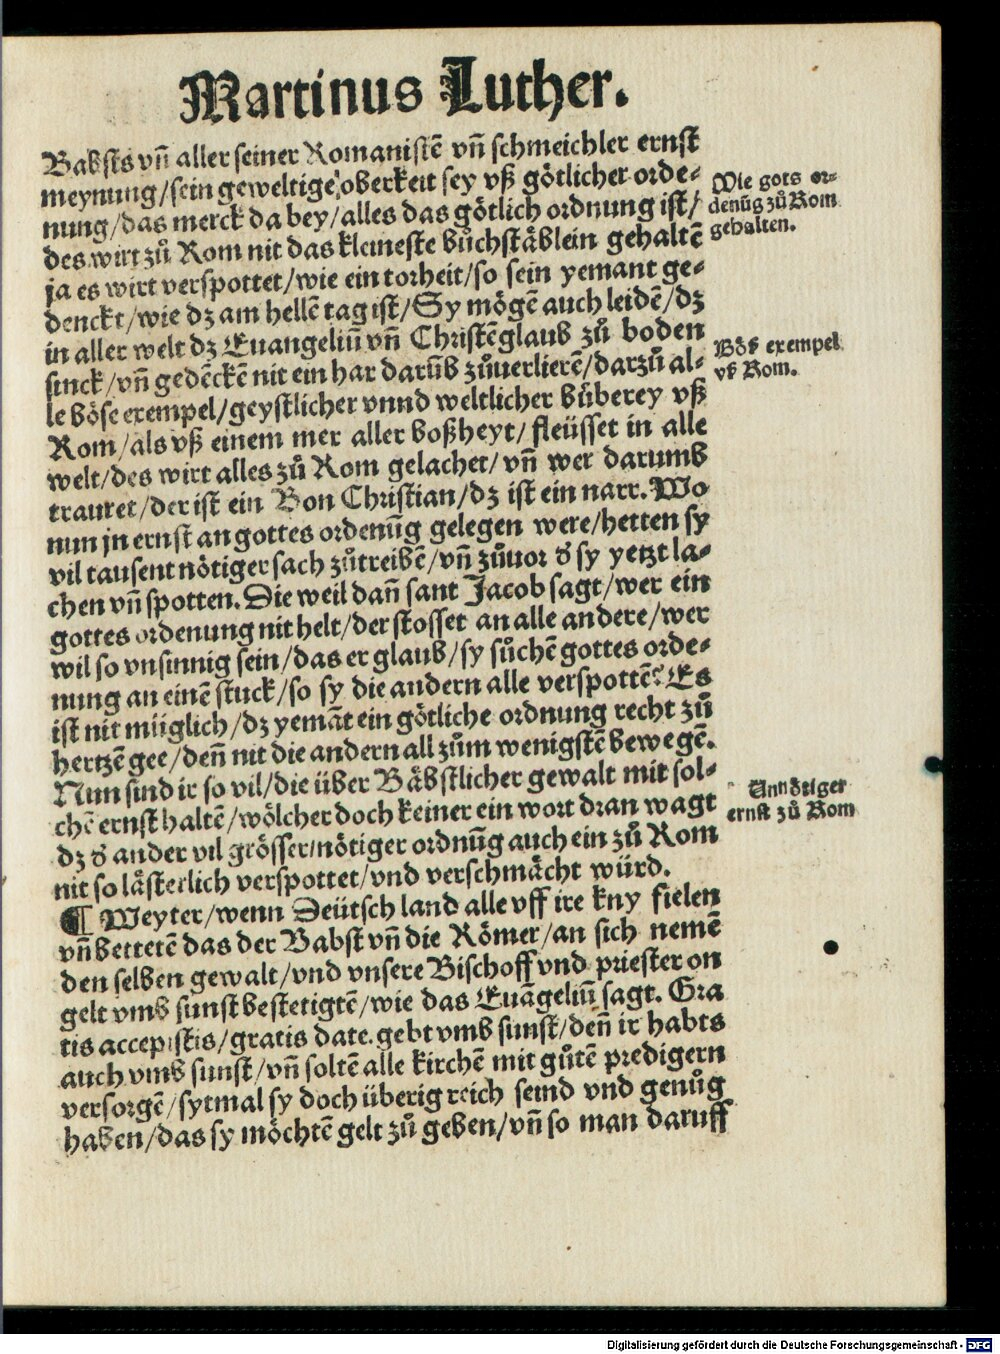 Martinus Luther.
Babsts vñ aller seiner Romanistē vñ schmeichler ernst
meynung/sein geweltige oberkeit sey vß götlicher orde-
nung/das merck da bey/alles das götlich ordnung ist/
des wirt zů Rom nit das kleineste bůchstäblein gehaltē
ja es wirt verspottet/wie ein torheit/so sein yemant ge-
denckt/wie dz am hellē tag ist/Sy mögē auch leidē/dz
in aller welt dz Euangeliū vñ Christēglaub zů boden
sinck/vñ gedēckē nit ein har darūb zůuerlierē/darzů al-
le böse exempel/geystlicher vnnd weltlicher bůberey vß
Rom/als vß einem mer aller boßheyt/fleüsset in alle
welt/des wirt alles zů Rom gelachet/vñ wer darumb
trauret/der ist ein Bon Christian/dz ist ein narr. Wo
nun jn ernst an gottes ordenūg gelegen were/hetten sy
vil tausent nötiger sach zůtreibē/vñ zůuor d̕ sy yetzt la-
chen vñ spotten. Die weil dañ sant Jacob sagt/wer ein
gottes ordenung nit helt/der stosset an alle andere/wer
wil so vnsinnig sein/das er glaub/sy sůchē gottes orde-
nung an einē stuck/so sy die andern alle verspottē? Es
ist nit müglich/dz yemāt ein götliche ordnung recht zů
hertzē gee/deñ nit die andern all zům wenigstē bewegē.
Nun sind ir so vil/die über Bäbstlicher gewalt mit sol-
chē ernst haltē/wölcher doch keiner ein wort dran wagt
dz d̕ ander vil grösser/nötiger ordnūg auch ein zů Rom
nit so lästerlich verspottet/vnd verschmächt würd.
¶ Weyter/wenn Deütsch land alle vff ire kny fielen
vñ bettetē das der Babst vñ die Römer/an sich nemē
den selben gewalt/vnd vnsere Bischoff vnd priester on
gelt vmb sunst bestetigtē/wie das Euāgeliū sagt. Gra
tis accepistis/gratis date. gebt vmb sunst/deñ ir habts
auch vmb sunst/vñ soltē alle kirchē mit gůtē predigern
versorgē/sytmal sy doch überig reich seind vnd genůg
haben/das sy möchtē gelt zů geben/vñ so man daruff
Wie gots or-
denūg zů Rom
gehalten.
Bös exempel
vß Rom.
Unnötiger
ernst zů Rom
Digitalisierung gefördert durch die Deutsche Forschungsgemeinschaft - DFG